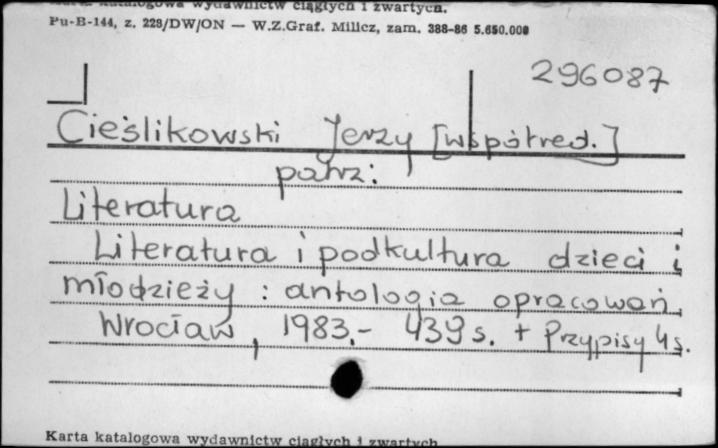 Karta katalogowa wydawnictw ciągłych i zwartych.
Pu-B-144, z. 228/DW/ON — W.Z.Graf. Milicz, zam. 388-86 5.650.000
296087
Cieślikowski Jerzy [współred.]
patrz:
Literatura
Literatura i podkultura dzieci i
młodzieży : antologia opracowań.
Wrocław, 1983.- 439 s. + Przypisy 4 s.
Karta katalogowa wydawnictw ciągłych i zwartych